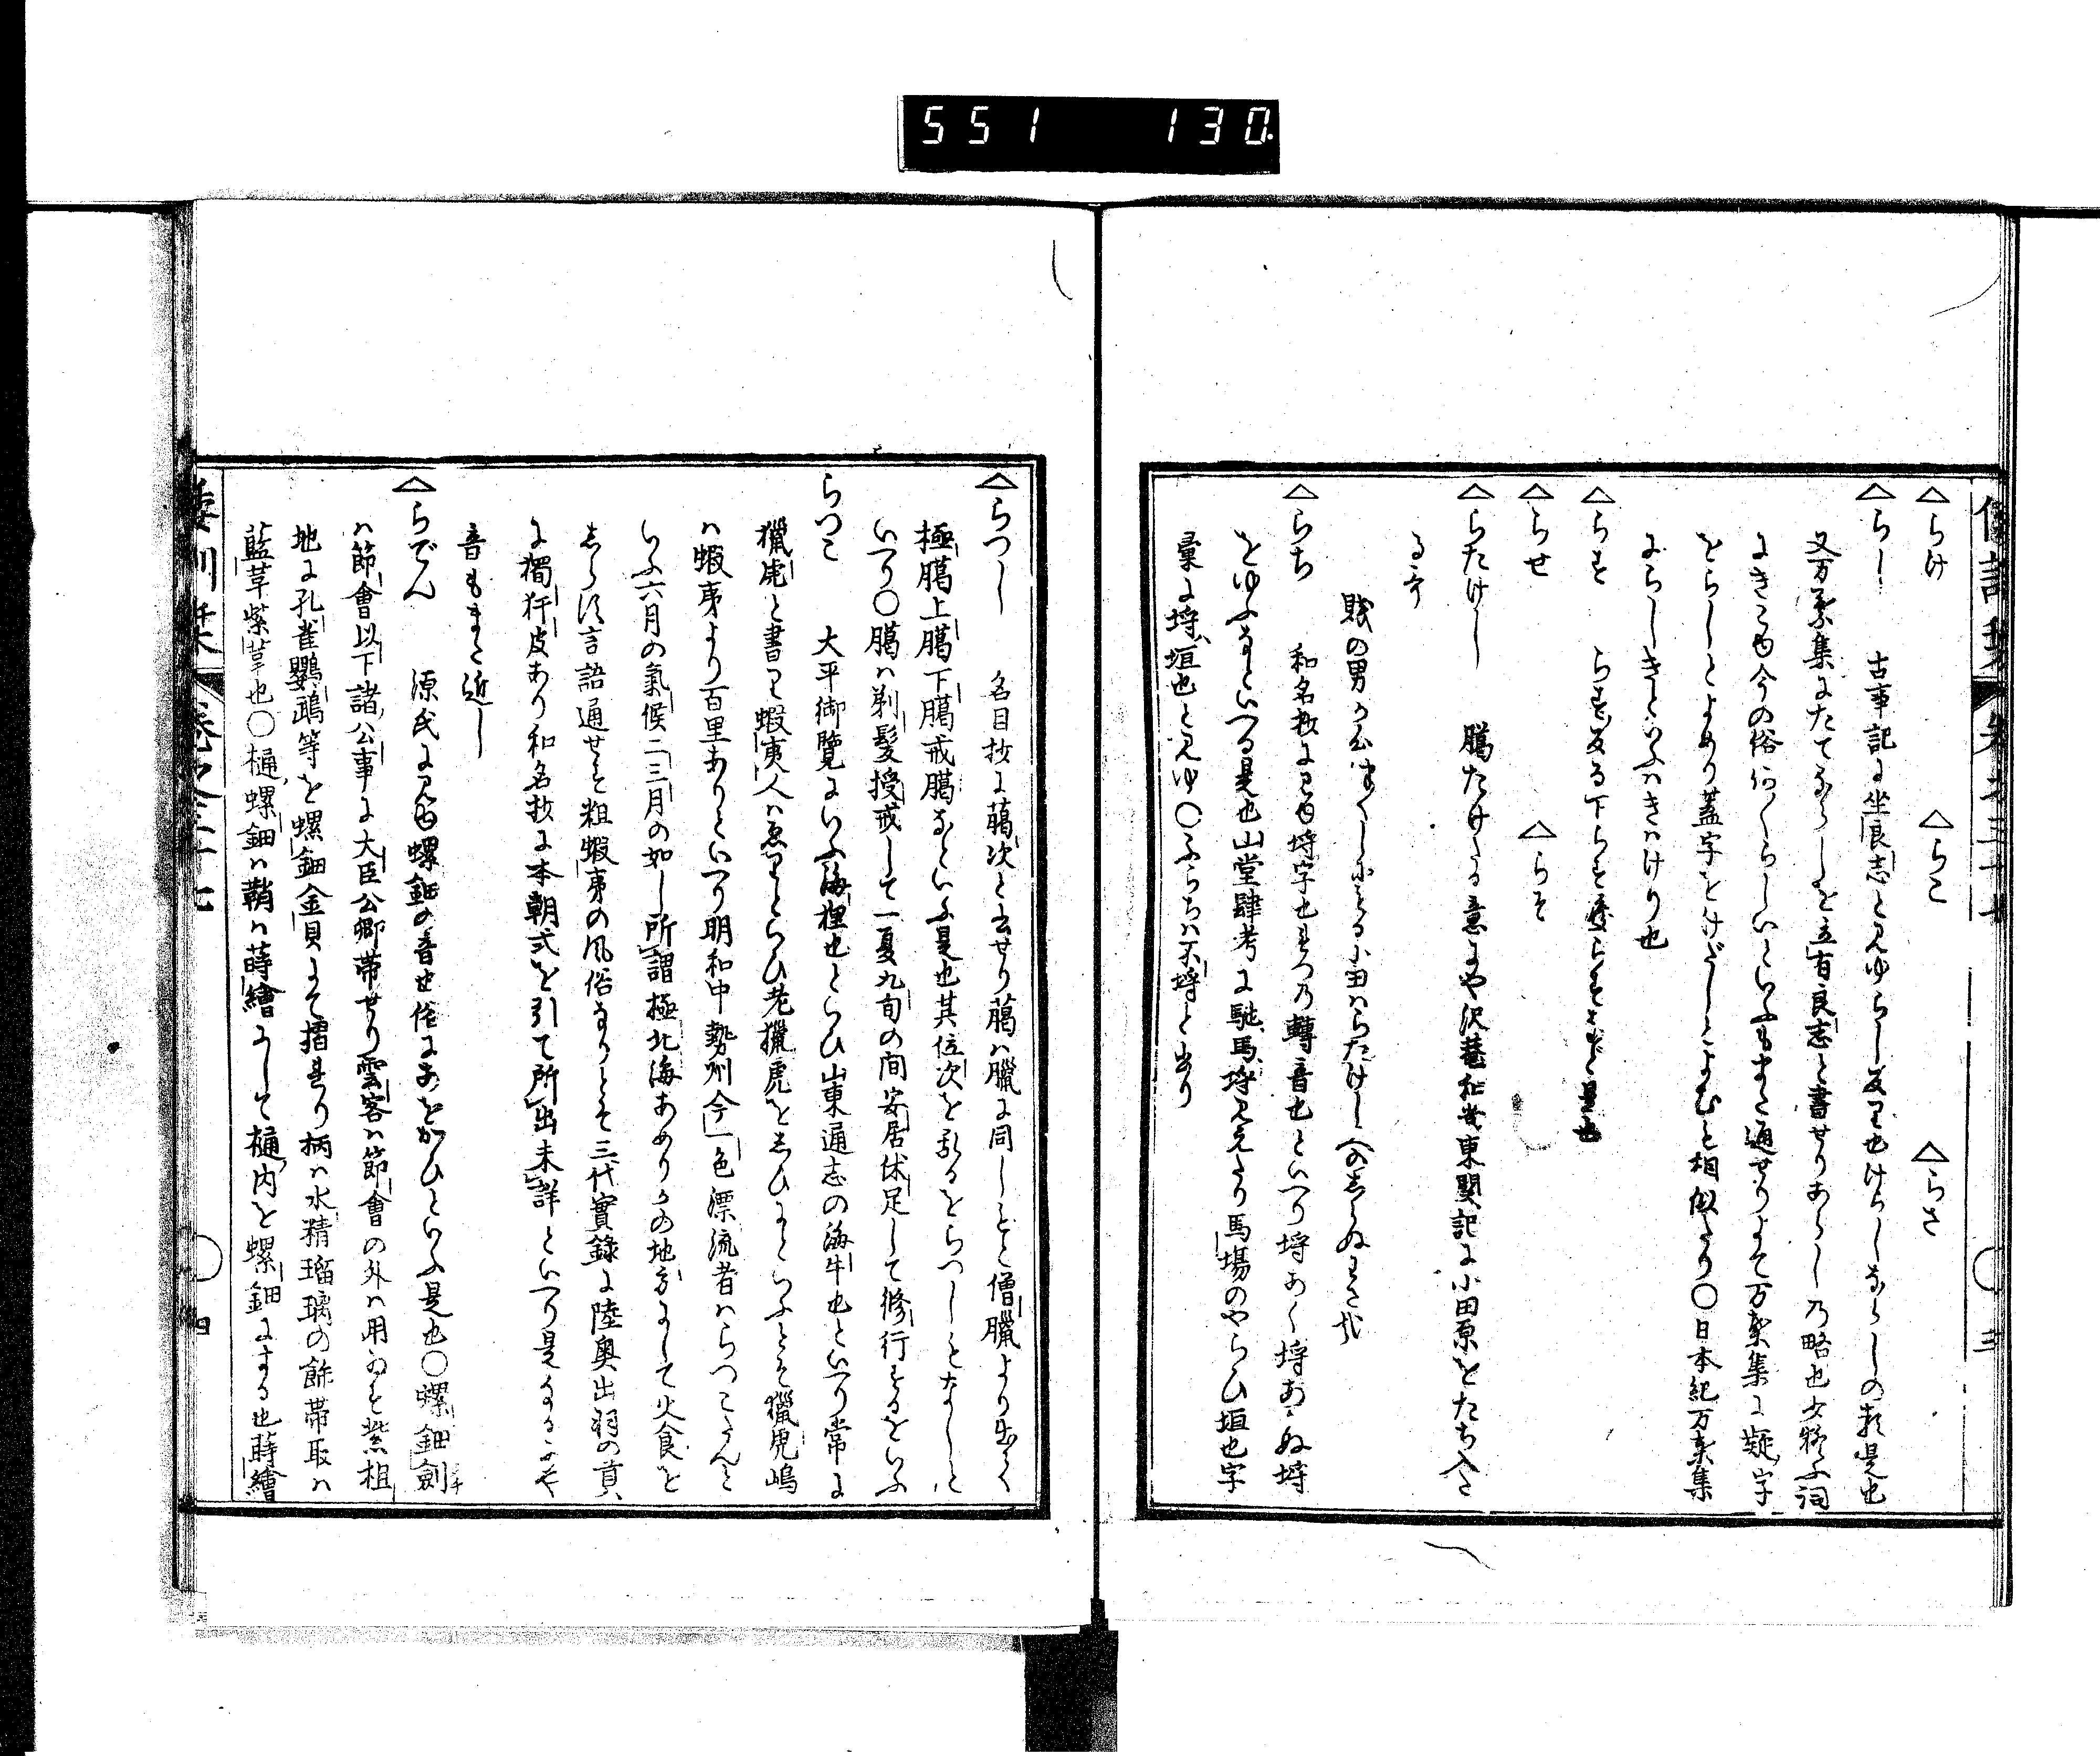 551 130
△らけ △らこ △らさ
△らし 古事記に坐良志とみゆらし反り也けらしならしの類是也
又万葉集にたてならしを立有良志と書せりあらしの略也又疑ふ詞
にきこゆ今の俗何々らしいといふもまた通せりよて万葉集に疑字
をらしとよめり蓋字をけだしとよむと相似たり〇日本紀万葉集
にらしきといふはきはけり也
△らす らす反る下らす疊らすなど是也
△らせ △らそ
△らたけし 﨟たけたる意にや沢菴和尚東關記に小田原をたち入さ
る所
賤の男か
△らち 和名抄にみゆ埒字也らつの轉音也といへり埒あく埒あかぬ埒
をゆふなといへる是也山堂肆考に馳馬埒みえたり馬場のやらひ垣也字
彙に埒垣也とみゆ〇ふらちは不埒と書り
倭訓栞 卷之三十七 〇 三
△らつし 名目抄に﨟次と書せり﨟は臘に同しもと僧臘より出て
極﨟上﨟下﨟戒﨟なといふ是也其位次を乱るをらつしもなしと
いへり〇﨟は剃髮授戒して一夏九旬の間安居休足して修行するをいふ
らつこ 大平御覽にいふ海狸也とらひ山東通志の海牛也といへり常に
獵虎と書り蝦夷人はゑりとらひ老獵虎をゑひにといふとそ獵虎嶋
は蝦夷より百里ありといへり明和中勢州今一色漂流者はらつこさんと
いふ六月の氣候二三月の如し所謂極北海あめりかの地方にして火食を
しらす言語通せす粗蝦夷の風俗なりとそ三代實錄に陸奧出羽の貢
に獨犴皮あり和名抄に本朝式を引て所出未詳といへり是なるにや
音もまた近し
△らでん 源氏にみゆ螺鈿の音也俗にあをがひといふ是也〇螺鈿劍
は節會以下諸公事に大臣公卿帶せり雲客は節會の外は用ゐす紫袓
地に孔雀鸚鵡等を螺鈿金貝にて摺あり柄は水精瑠璃の餝帶取は
藍革紫革也〇樋螺鈿は鞘は蒔繪にして樋内を螺鈿にする也蒔繪
倭訓栞 卷之三十七 〇 四